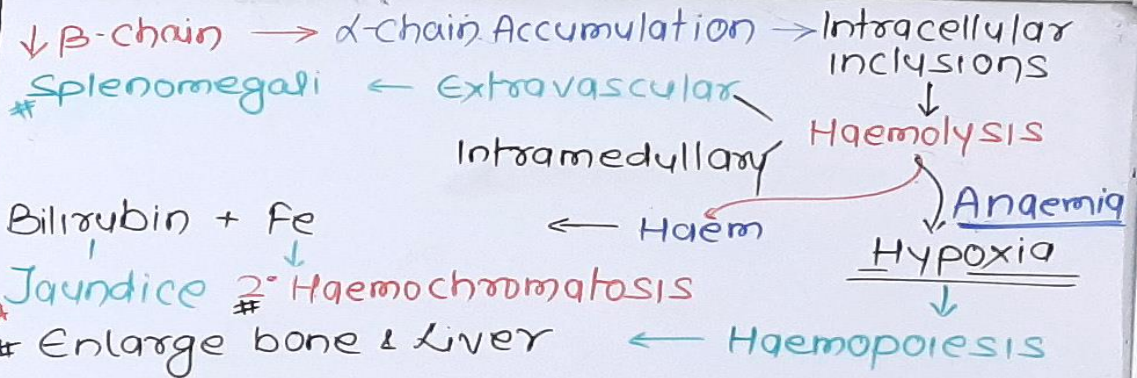 ↓ β-chain → α-chain Accumulation → Intracellular
inclusions
↓
# Splenomegali ← Extravascular
Haemolysis
Intramedullary
Anaemia
Bilirubin + Fe ← Haem
Hypoxia
↓
Jaundice 2° Haemochromatosis
#
↓
# Enlarge bone & Liver ← Haemopoiesis